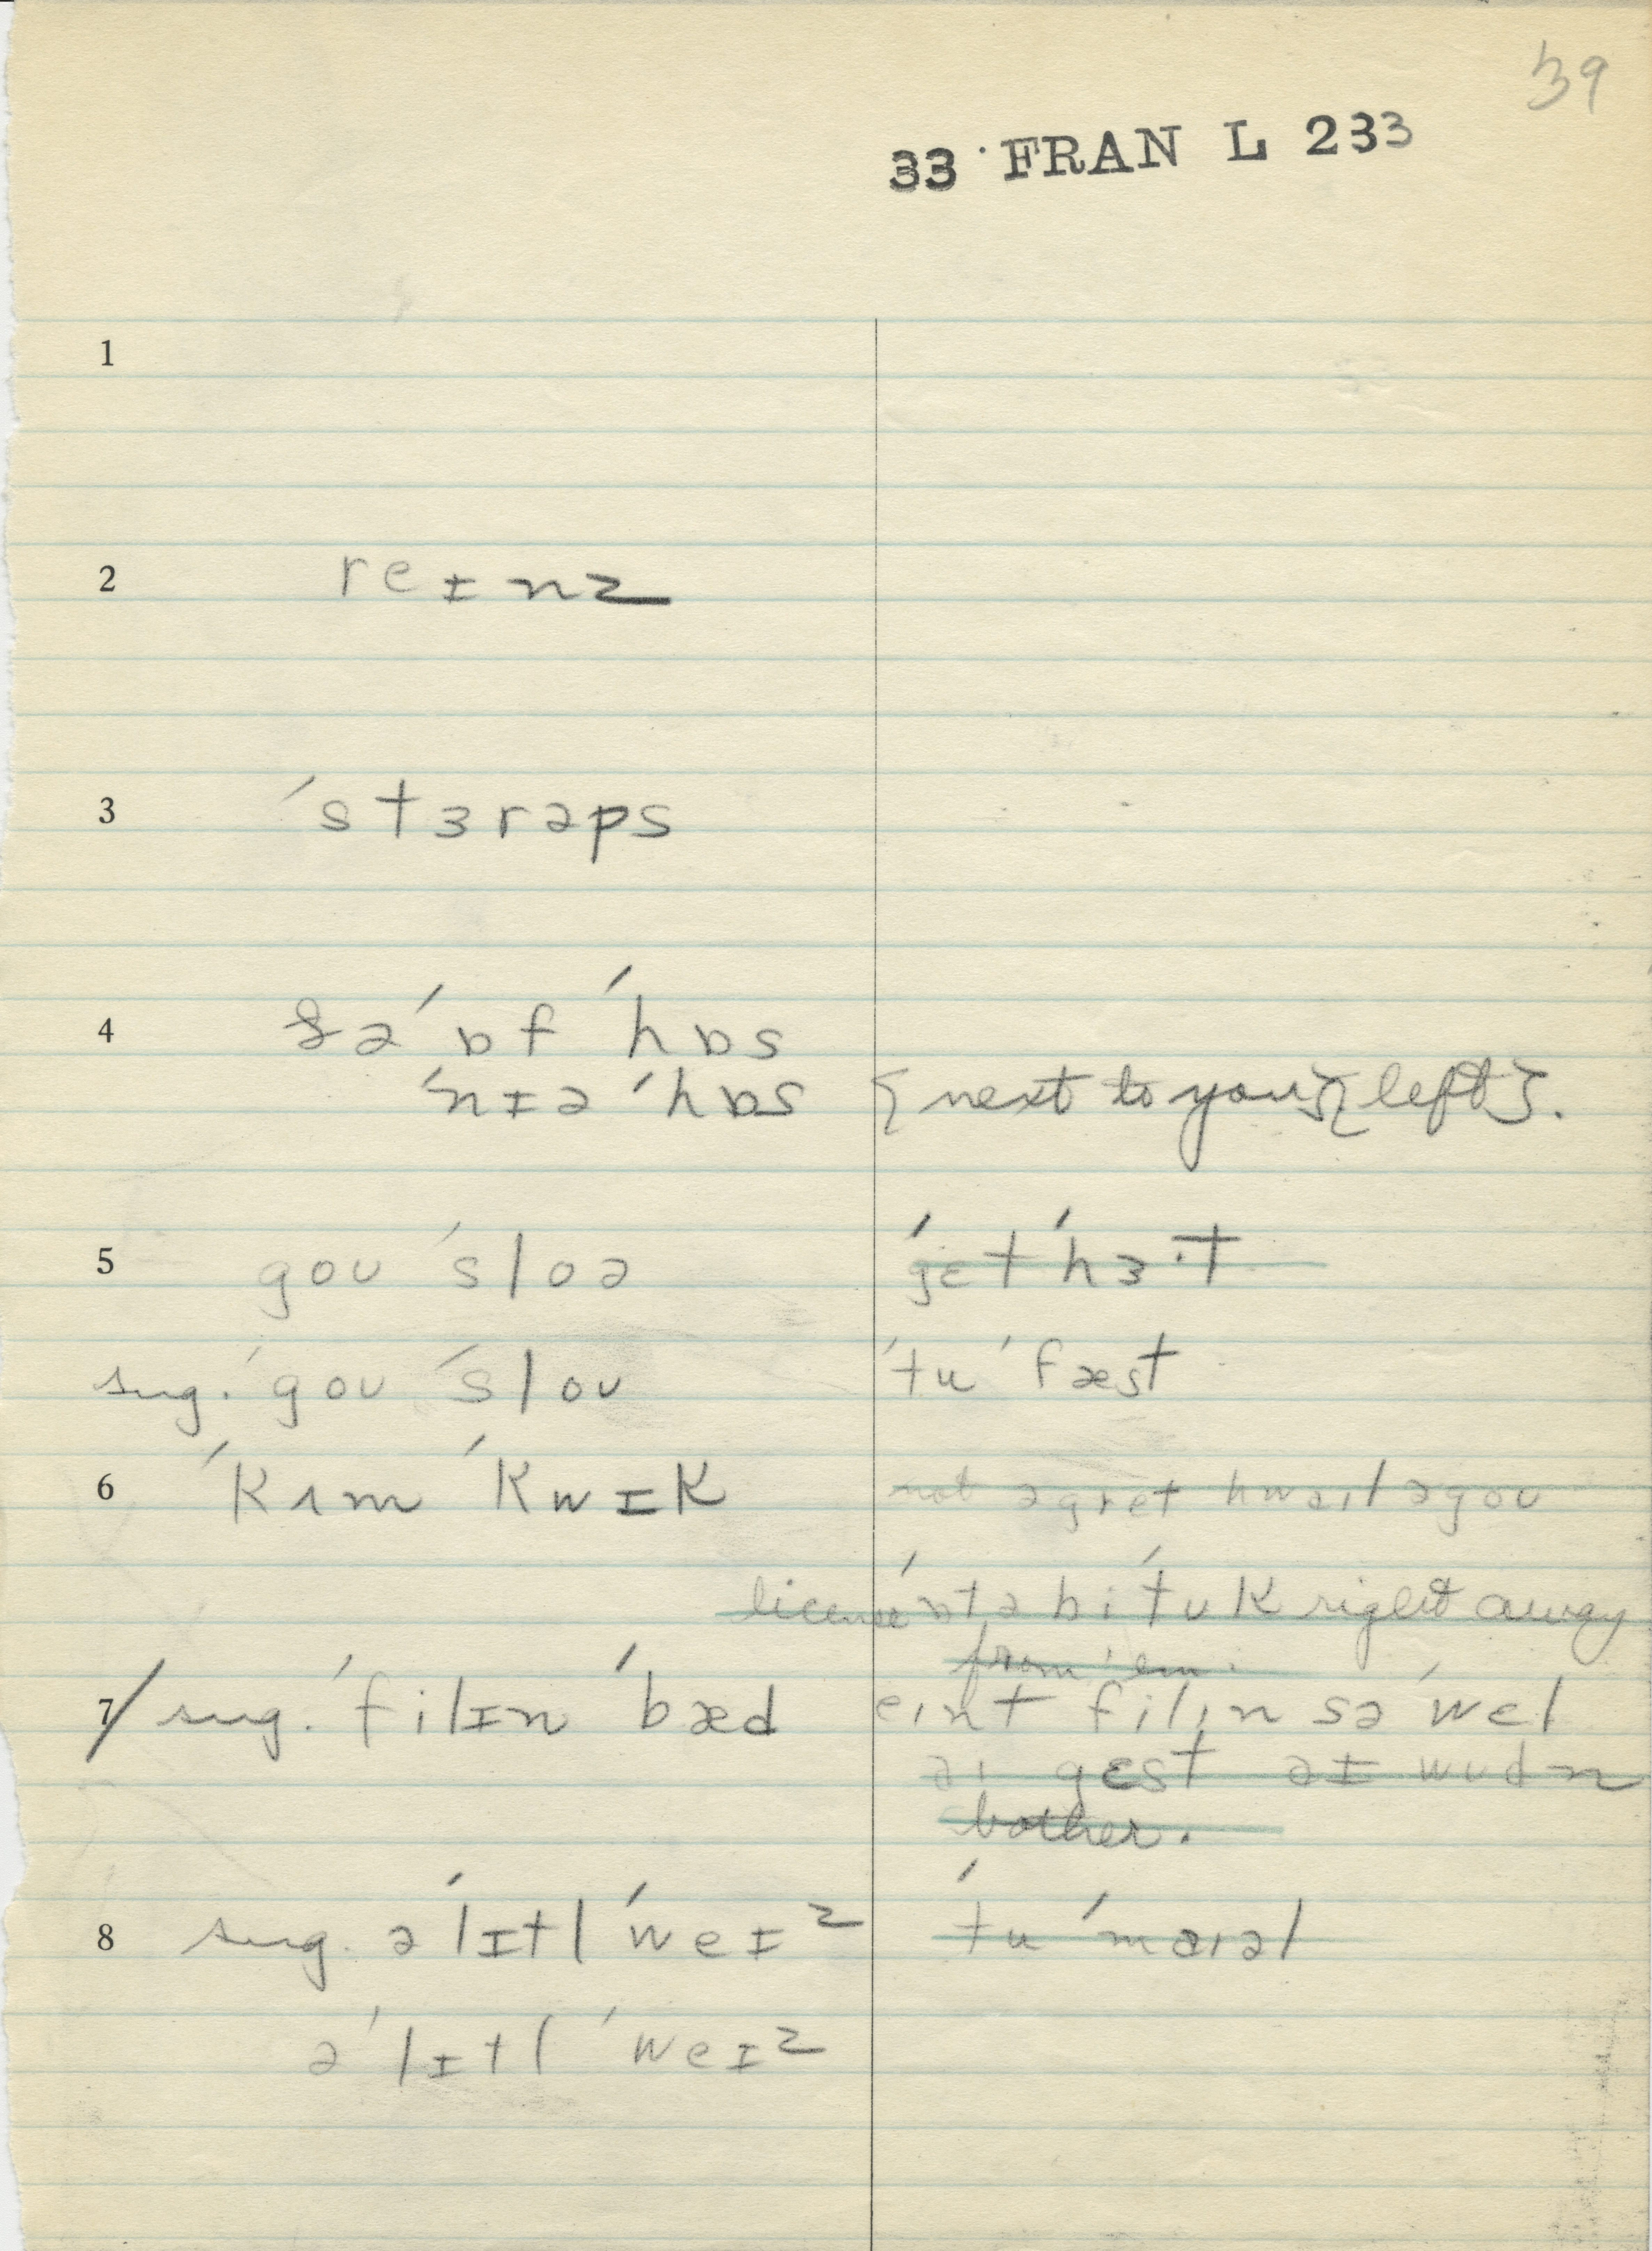 39
33 FRAN L 233
1
2 reɪnz
3 ˈstɜrəps
4 ðə ˈɒf ˈhɒs
ˈnɪə ˈhɒs {next to you} {left}.
5 goʊ ˈsloə ˈgɛt ˈhɜ·t
sug. ˈgoʊ ˈsloʊ ˈtu ˈfæst
6 ˈkʌm ˈkwɪk not əgret hwaɪl əgoʊ
license ˈɒt ə bi ˈtʊk right away
from 'em.
7 sug. ˈfilɪn ˈbæd eɪnt filɪn sə ˈwel
aɪ gɛst əɪ wʊdn
bother.
8 sug. ə ˈlɪtl ˈweɪz ˈtu ˈmaɪəl
ə ˈlɪtl ˈweɪz